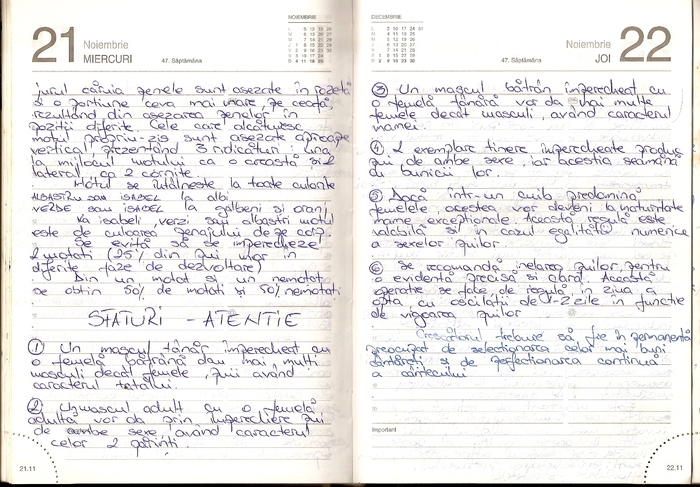 21 Noiembrie
MIERCURI
47. Săptămâna
NOIEMBRIE
jurul căruia penele sunt asezate în rozetă
si o portiune ceva mai mare, pe ceafă,
rezultând din asezarea penelor în
pozitii diferite. Cele care alcătuiesc
motul propriu-zis sunt asezate aproape
vertical, prezentând 3 ridicături: una
la mijlocul motului ca o creastă si 2
laterale ca 2 cornite.
Motul se întâlneste la toate culorile
ALBASTRU sau ISABEL la albi
VERDE sau ISABEL la galbeni si orani
La isabeli, verzi sau albastri motul
este de culoarea penajului de pe corp.
Se evită să se împerecheze
2 motati (25% din pui mor în
diferite faze de dezvoltare)
Din un motat si un nemotat
se obtin 50% de motati si 50% nemotati
SFATURI - ATENTIE
① Un mascul tânăr împerecheat cu
o femelă bătrână dau mai multi
masculi decat femele, puii având
caracterul tatălui.
② Un mascul adult cu o femelă
adultă vor da prin împerechere pui
de ambe sexe, având caracterul
celor 2 părinti.
21.11
DECEMBRIE
47. Săptămâna
Noiembrie 22
JOI
③ Un mascul bătrân împerecheat cu
o femelă tânără vor da mai multe
femele decat masculi, având caracterul
mamei.
④ 2 exemplare tinere împerecheate produc
pui de ambe sexe, iar acestia seamănă
cu bunicii lor.
⑤ Dacă într-un cuib predomină
femelele, acestea vor deveni la maturitate
mame exceptionale. Această regulă este
valabilă si în cazul egalitătii numerice
a sexelor puilor.
⑥ Se recomandă inelarea puilor, pentru
o evidentă precisă si clară. Această
operatie se face de regulă în ziua a
opta, cu oscilatii de 1-2 zile în functie
de vigoarea puilor
Crescătorul trebuie să fie în permanentă
preocupat de selectionarea celor mai buni
cântăreti si de perfectionarea continuă
a cântecului
Important
22.11